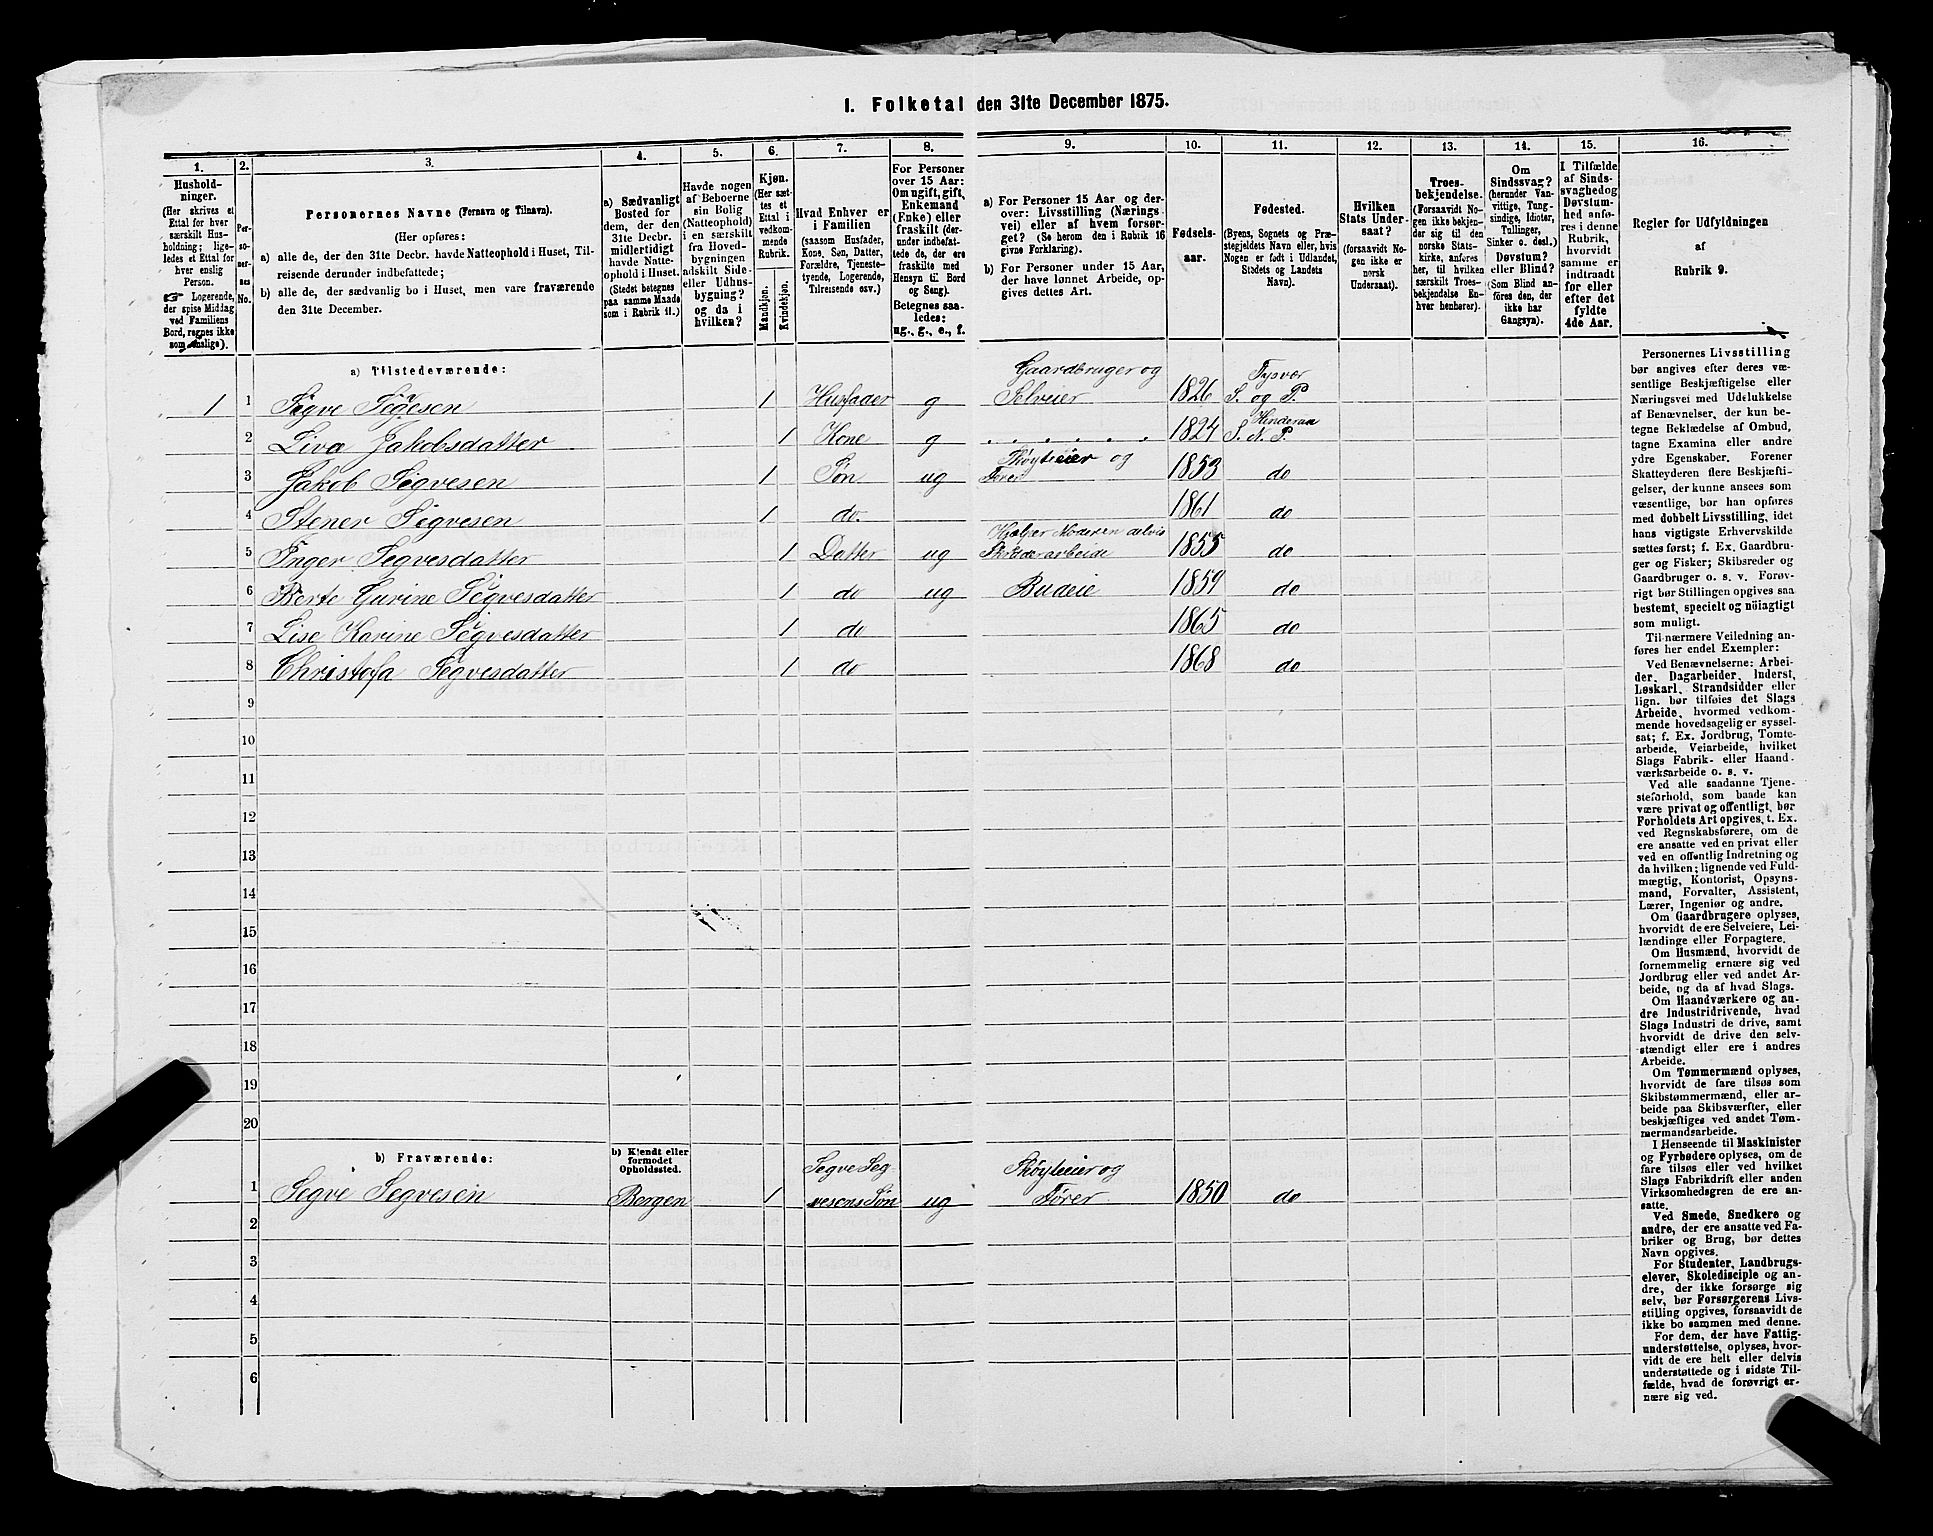 I. Folketal den 31te December 1875.
1. 2. 3. 4. 5. 6. 7. 8. 9. 10. 11. 12. 13. 14. 15. 16.
Hushold-
ninger.
(Her skrives et
Ettal for hver
særskilt Hus-
holdning; lige-
ledes et Ettal for
hver enslig
Person.
☞ Logerende,
der spise Middag
ved Familiens
Bord, regnes ikke
som enslige).
Per-
so-
ner-
nes
No.
Personernes Navne (Fornavn og Tilnavn).
(Her opføres:
a) alle de, der den 31te Decbr. havde Natteophold i Huset, Til-
reisende derunder indbefattede;
b) alle de, der sædvanlig bo i Huset, men vare fraværende
den 31te December.
a) Sædvanligt
Bosted for
dem, der den
31te Decbr.
midlertidigt
havde Natte-
ophold i Huset.
(Stedet betegnes
paa samme Maade
som i Rubrik 11.)
Havde nogen
af Beboerne
sin Bolig
(Natteophold)
i en særskilt
fra Hoved-
bygningen
adskilt Side-
eller Udhus-
bygning?
og da i
hvilken?
Kjøn.
(Her sæt-
tes et
Ettal i
vedkom-
mende
Rubrik.
Mandkjøn.
Kvindekjøn.
Hvad Enhver er
i Familien
(saasom Husfader,
Kone, Søn, Datter,
Forældre, Tjeneste-
tyende, Logerende,
Tilreisende osv.)
For Personer
over 15 Aar:
Om ugift, gift,
Enkemand
(Enke) eller
fraskilt (der-
under indbefat-
tede de, der ere
fraskilte med
Hensyn til Bord
og Seng).
Betegnes saa-
ledes:
ug., g., e., f.
a) For Personer 15 Aar og der-
over: Livsstilling (Nærings-
vei) eller af hvem forsør-
get? (Se herom den i Rubrik 16
givne Forklaring).
b) For Personer under 15 Aar,
der have lønnet Arbeide, op-
gives dettes Art.
Fødsels-
aar.
Fødested.
(Byens, Sognets og Præ-
stegjeldets Navn eller, hvis
Nogen er født i Udlandet,
Stedets og Landets
Navn).
Hvilken
Stats Under-
saat?
(forsaavidt No-
gen ikke er
norsk
Undersaat).
Troes-
bekjendelse.
(Forsaavidt No-
gen ikke bekjen-
der sig til den
norske Stats-
kirke, anføres
her, til hvilken
særskilt Troes-
bekjendelse En-
hver henhører).
Om
Sindssvag?
(herunder Van-
vittige, Tung-
sindige, Idioter,
Tullinger,
Sinker o. desl.)
Døvstum?
eller Blind?
(Som Blind an-
føres den, der
ikke har
Gangsyn).
I Tilfælde
af Sinds-
svaghedog
Døvstum-
hed anfø-
res i denne
Rubrik,
hvorvidt
samme er
indtraadt
før eller
efter det
fyldte
4de Aar.
Regler for Udfyldningen
af
Rubrik 9.
a) Tilstedeværende:
Gaardbruger og Tysvær
1 1 Sigve Sigesen 1 Husfader g Selveier 1826 S. og P.
Hinderaa
2 Liva Jakobsdatter 1 Kone g . . . . . . 1824 S. N. P.
Skøyteeier og
3 Jakob Sigvesen 1 Søn ug Fører 1853 do
4 Stener Sigvesen 1 do. 1861 do
Hjælper Moderen delvis
5 Inger Segvesdatter 1 Datter ug 1855 do
6 Berte Gurine Sigvesdatter 1 do ug Budeie 1859 do
7 Lise Karine Sigvesdatter 1 do 1865 do
8 Christofa Segvesdatter 1 do 1868 do
9
10
11
12
13
14
15
16
17
18
19
20
b) Fraværende:
b) Kjendt eller
formodet
Opholdssted.
Segve Seg Skøyteeier og
1 Segve Segvesen Bergen 1 vesens Søn ug Fører 1850 do
2
3
4
5
6
Personernes Livsstilling
bør angives efter deres væ-
sentlige Beskjæftigelse eller
Næringsvei med Udelukkelse
af Benævnelser, der kun be-
tegne Beklædelse af Ombud,
tagne Examina eller andre
ydre Egenskaber. Forener
Skatteyderen flere Beskjæfti-
gelser, der kunne ansees som
væsentlige, bør han opføres
med dobbelt Livsstilling, idet
hans vigtigste Erhvervskilde
sættes først; f. Ex. Gaardbru-
ger og Fisker; Skibsreder og
Gaardbruger o. s. v. Forøv-
rigt bør Stillingen opgives saa
bestemt, specielt og nøiagtigt
som muligt.
Til nærmere Veiledning an-
føres her endel Exempler:
Ved Benævnelserne: Arbei-
der, Dagarbeider, Inderst,
Løskarl, Strandsidder eller
lign. bør tilføies det Slags
Arbeide, hvormed vedkom-
mende hovedsagelig er syssel-
sat; f. Ex. Jordbrug, Tomte-
arbeide, Veiarbeide, hvilket
Slags Fabrik- eller Haand-
værksarbeide o. s. v.
Ved alle saadanne Tjene-
steforhold, som baade kan
være privat og offentligt, bør
Forholdets Art opgives, t. Ex.
ved Regnskabsførere, om de
ere ansatte ved en privat eller
ved en offentlig Indretning og
da hvilken; lignende ved Fuld-
mægtig, Kontorist, Opsyns-
mand, Forvalter, Assistent,
Lærer, Ingeniør og andre.
Om Gaardbrugere oplyses,
hvorvidt de ere Selveiere, Lei-
lændinge eller Forpagtere.
Om Husmænd, hvorvidt de
fornemmelig ernære sig ved
Jordbrug eller ved andet Ar-
beide, og da af hvad Slags.
Om Haandværkere og an-
dre Industridrivende, hvad
Slags Industri de drive, samt
hvorvidt de drive den selv-
stændigt eller ere i andres
Arbeide.
Om Tømmermænd oplyses,
hvorvidt de fare tilsøs som
Skibstømmermænd, eller ar-
beide paa Skibsværfter, eller
beskjæftiges ved andet Tøm-
mermandsarbeide.
I Henseende til Maskinister
og Fyrbødere oplyses, om de
fare tilsøs eller ved hvilket
Slags Fabrikdrift eller anden
Virksomhedsgren de ere an-
satte.
Ved Smede, Snedkere og
andre, der ere ansatte ved Fa-
briker og Brug, bør dettes
Navn opgives.
For Studenter, Landbrugs-
elever, Skoledisciple og an-
dre, der ikke forsørge sig
selv, bør Forsørgerens Livs-
stilling opgives, forsaavidt de
ikke bo sammen med denne.
For dem, der have Fattig-
understøttelse, oplyses, hvor-
vidt de ere helt eller delvis
understøttede og i sidste Til-
fælde, hvad de forøvrigt er-
nære sig ved.